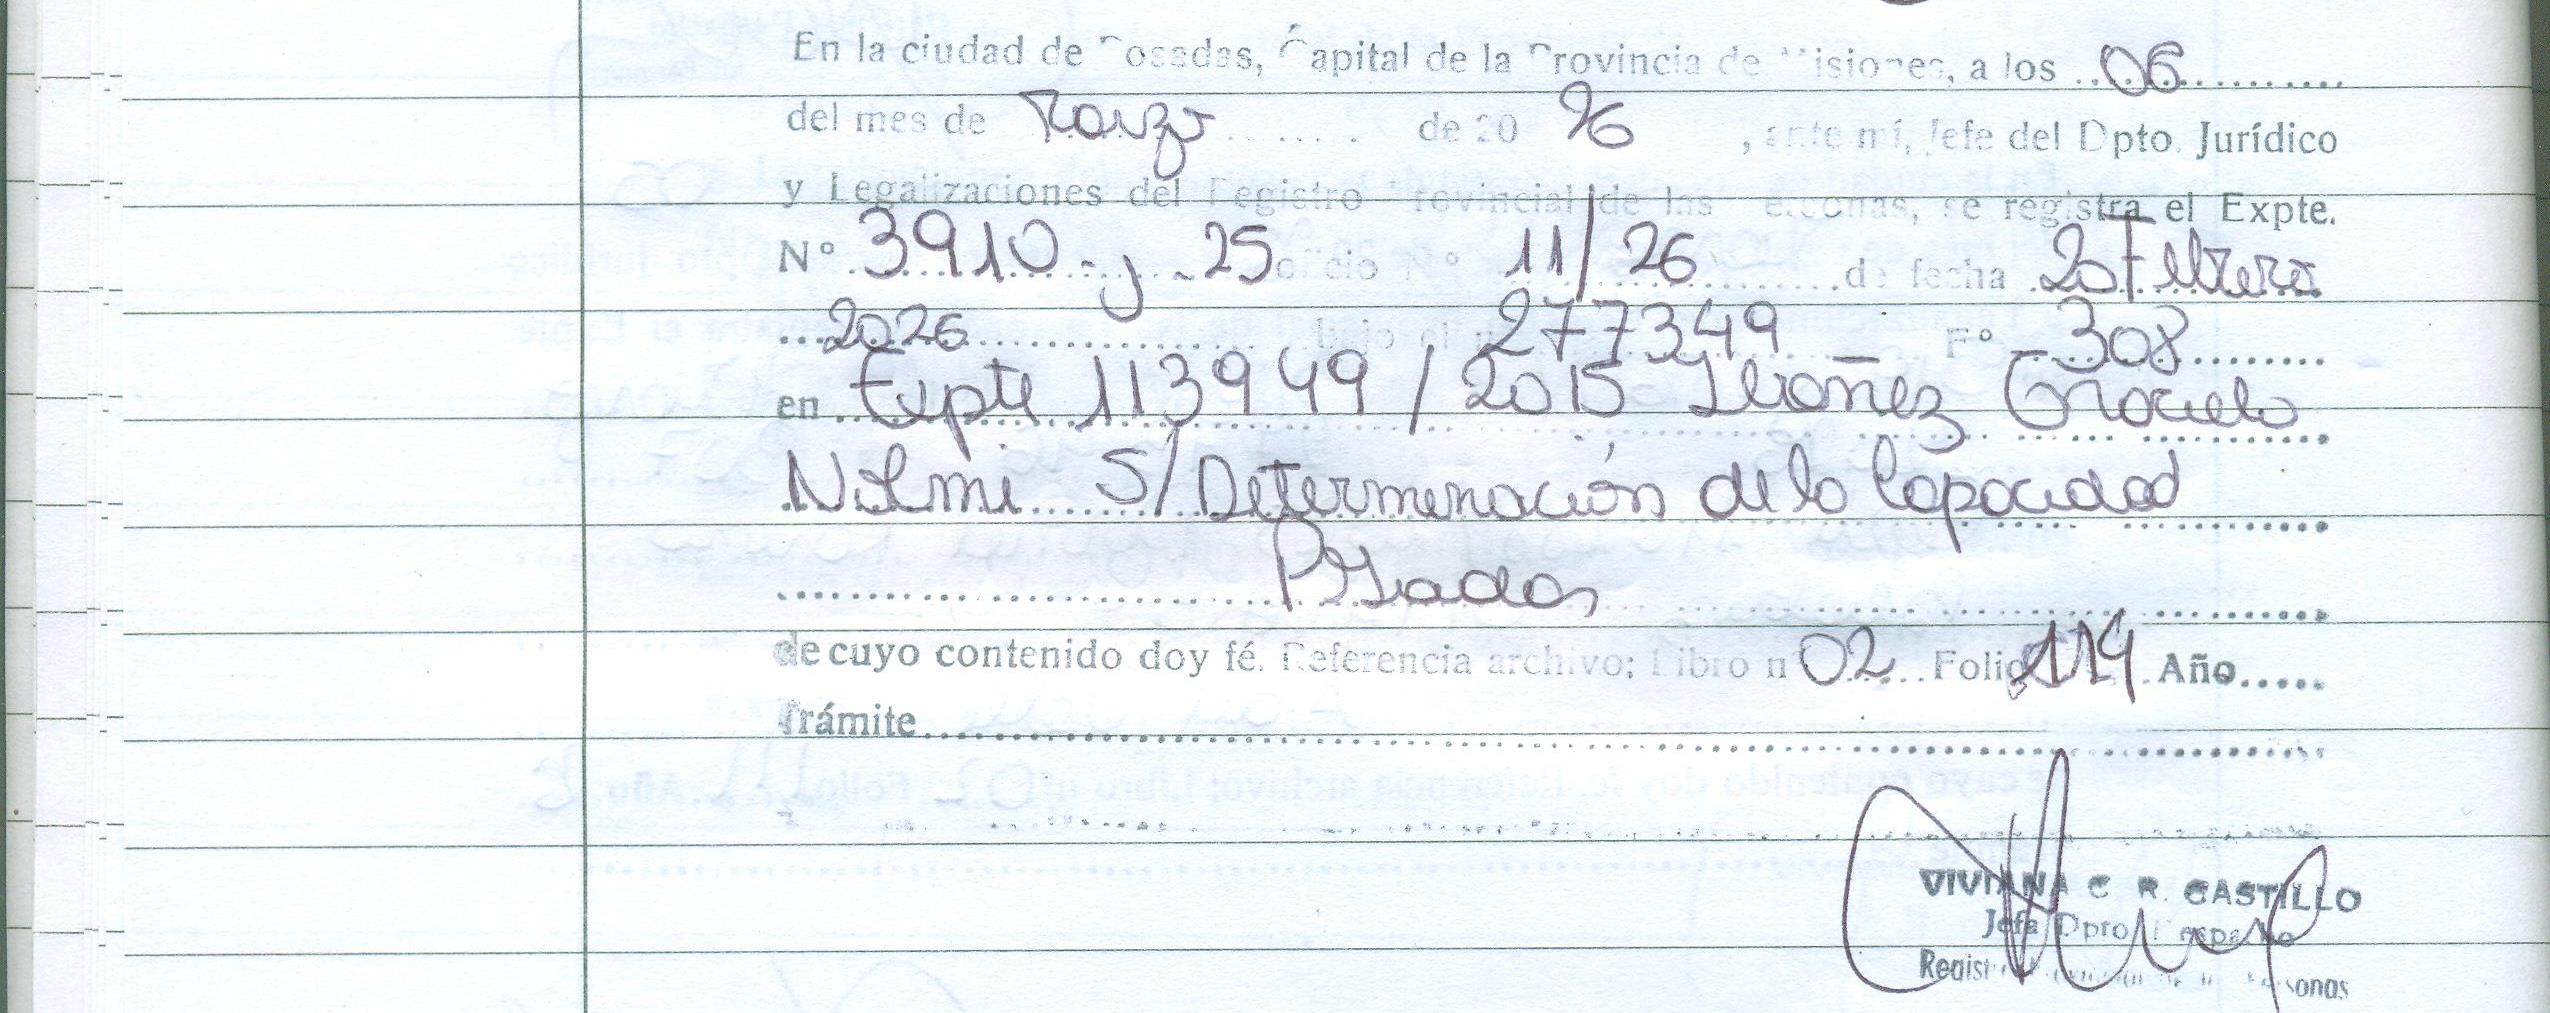 En la ciudad de Posadas, Capital de la Provincia de Misiones, a los 06
del mes de Marzo de 20 26, ante mí, Jefe del Dpto. Jurídico
y Legalizaciones del Registro Provincial de las Personas, se registra el Expte.
Nº 3910-y-25 oficio Nº 11/26 de fecha 20 Febrero
2026 bajo el nº 277349 - Fº - 308
en Expte 113949/2015 Ibañez Graciela
Nilmi S/ Determinación de la Capacidad
Posadas
de cuyo contenido doy fé. Referencia archivo: Libro nº 02 Folio 119 Año.....
Trámite
VIVIANA C R. CASTILLO
Jefa Dpto Despacho
Registro Provincial de las Personas